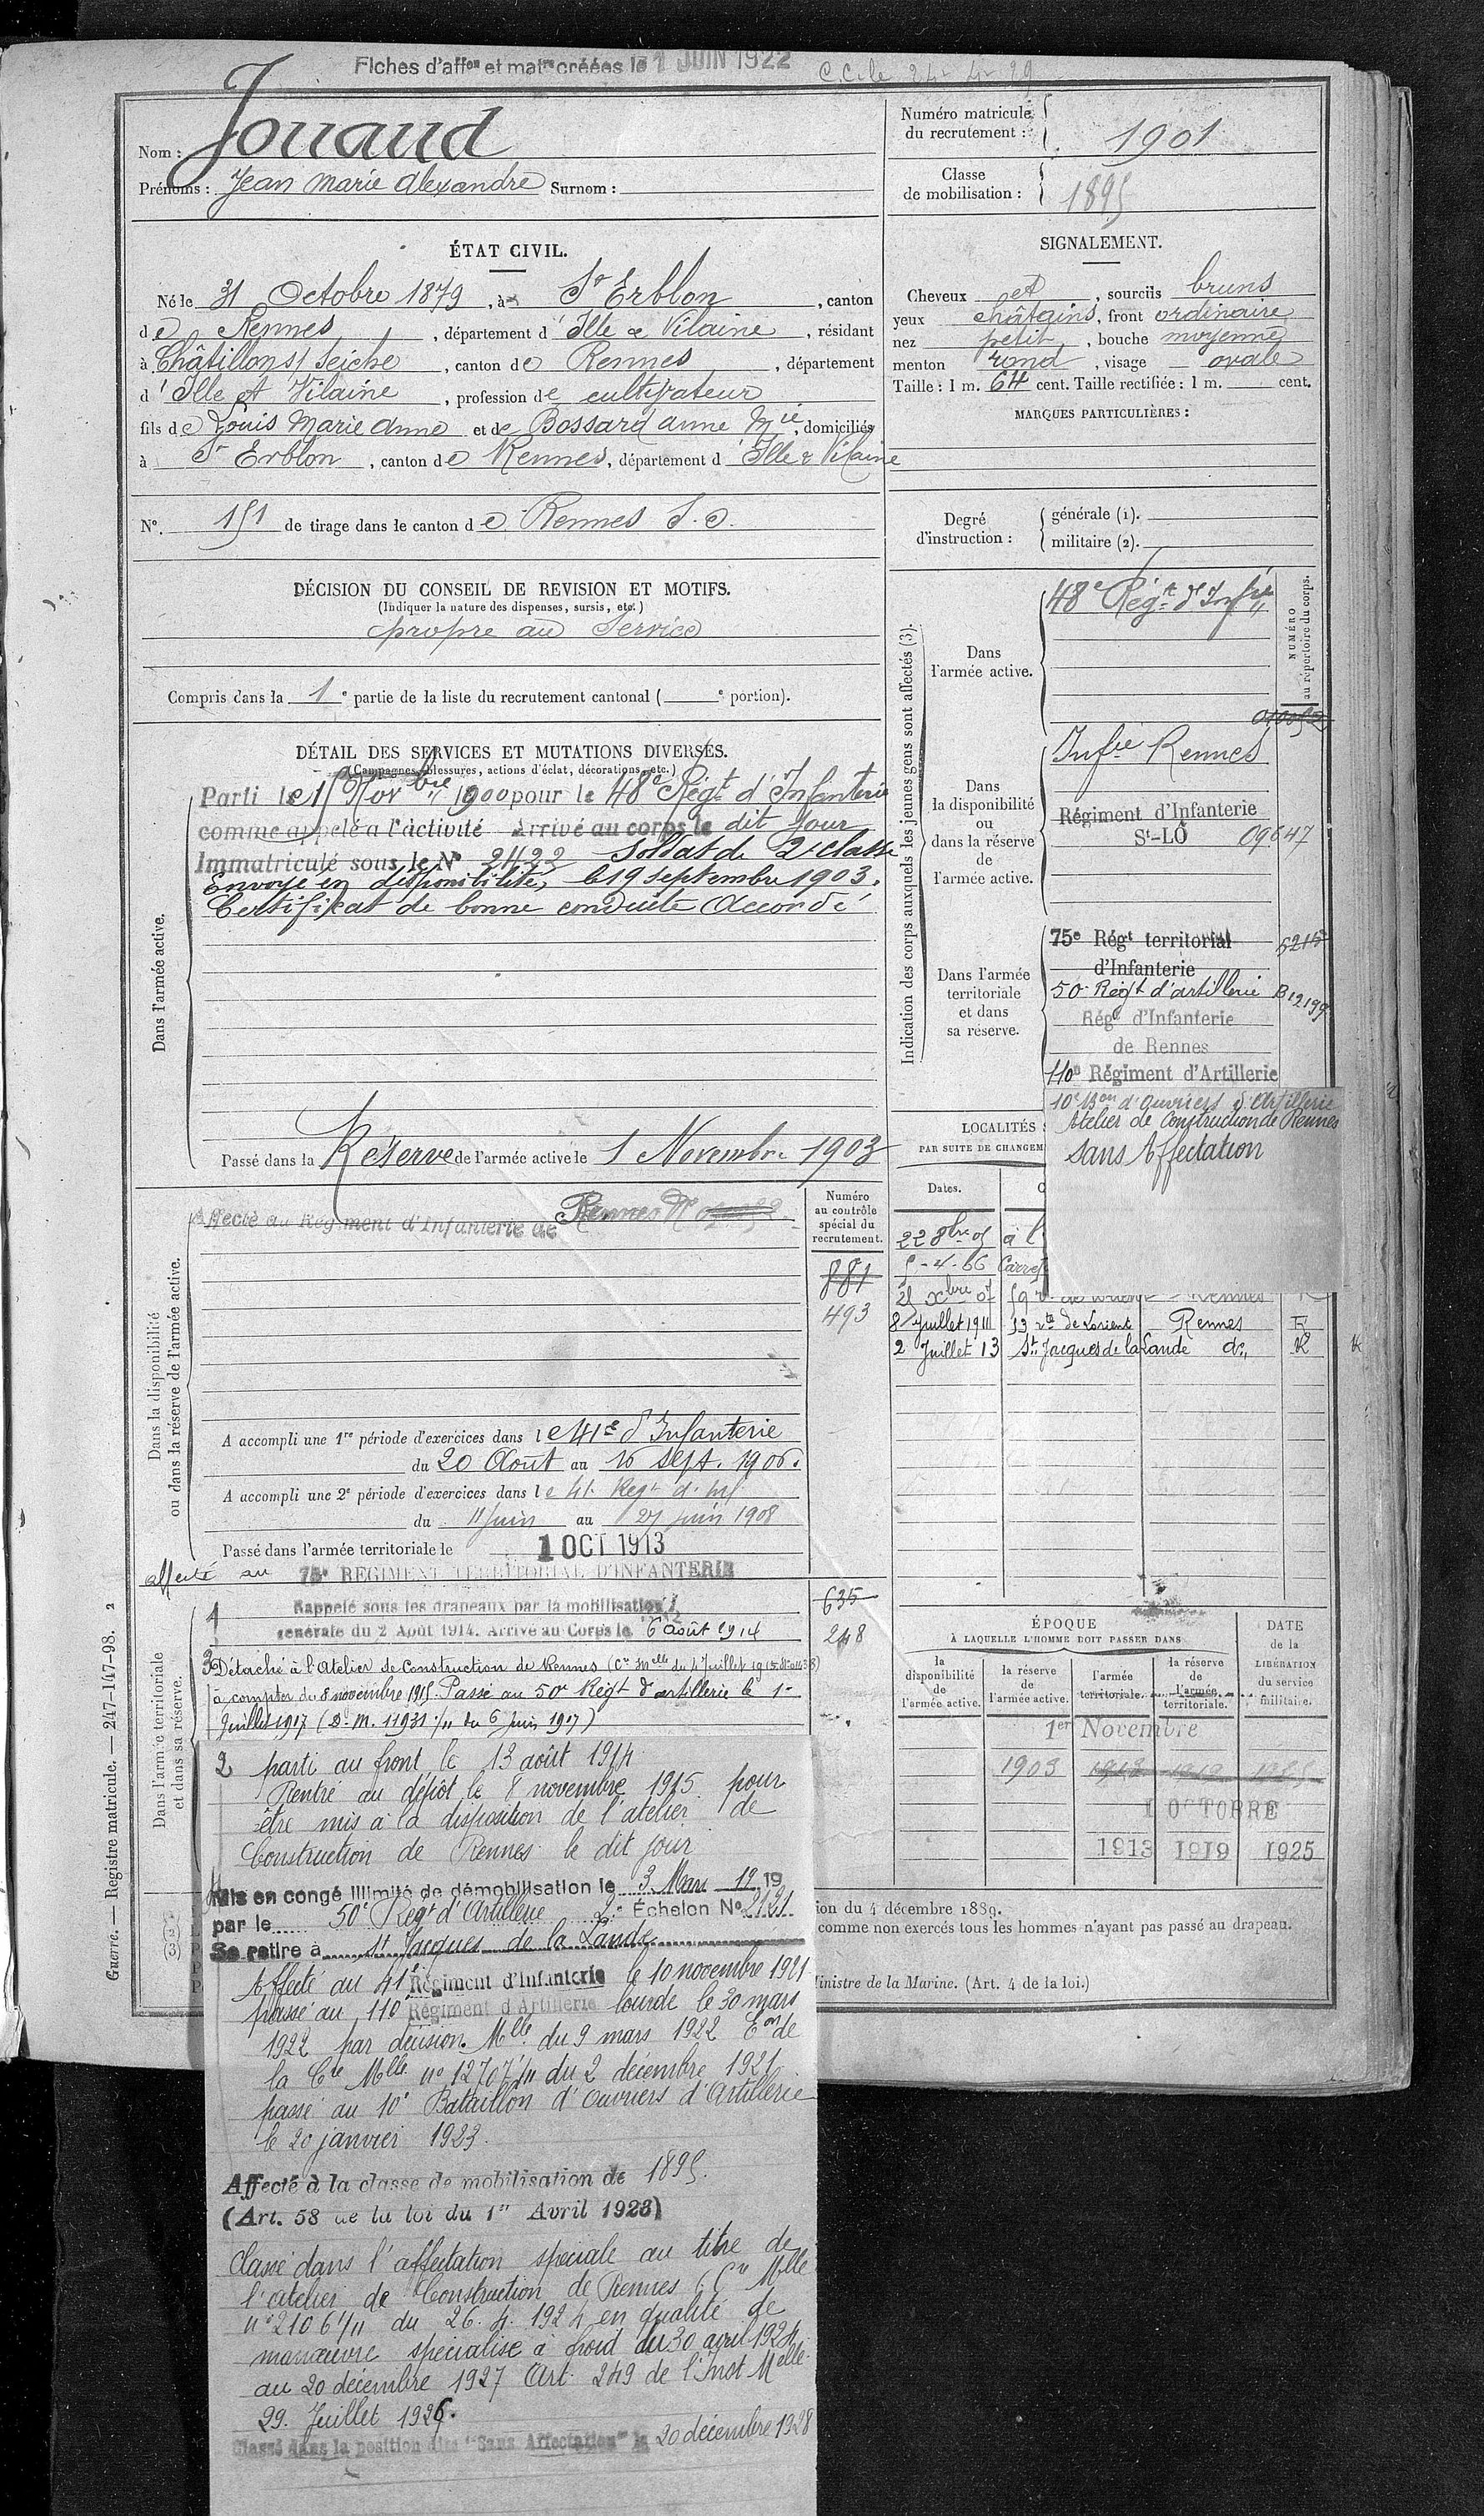 Fiches d'affon et matrs créées le 1 JUIN 1922
Nom : Jouaud
Prénoms : Jean Marie Alexandre Surnom :
Numéro matricule du recrutement : 1901
Classe de mobilisation : 1895
ÉTAT CIVIL.
Né le 31 Octobre 1879, à St Erblon, canton
de Rennes, département d'Ille & Vilaine, résidant
à Châtillon s/ Seiche, canton de Rennes, département
d'Ille et Vilaine, profession de cultivateur
fils de Louis Marie Anne et de Bossard Anne Mie, domiciliés
à St Erblon, canton de Rennes, département d'Ille & Vilaine
SIGNALEMENT.
Cheveux et, sourcils bruns
yeux châtains, front ordinaire
nez petit, bouche moyenne
menton rond, visage ovale
Taille : 1 m. 64 cent. Taille rectifiée : 1 m. cent.
MARQUES PARTICULIÈRES :
N° 151 de tirage dans le canton de Rennes S.O.
Degré d'instruction :
générale (1).
militaire (2).
DÉCISION DU CONSEIL DE REVISION ET MOTIFS.
(Indiquer la nature des dispenses, sursis, etc.)
propre au Service
Compris dans la 1e partie de la liste du recrutement cantonal ( e portion).
DÉTAIL DES SERVICES ET MUTATIONS DIVERSES.
(Campagnes, blessures, actions d'éclat, décorations, etc.)
Dans l'armée active.
Parti le 15 Novbre 1900 pour le 48e Régt d'Infanterie
comme appelé à l'activité Arrivé au corps le dit jour
Immatriculé sous le N° 2422 Soldat de 2e classe
Envoyé en disponibilité, le 19 septembre 1903.
Certificat de bonne conduite Accordé
Passé dans la Réserve de l'armée active le 1 Novembre 1903
Indication des corps auxquels les jeunes gens sont affectés (3).
NUMÉRO au répertoire du corps.
Dans l'armée active.
48e Régt d'Infie
Dans la disponibilité ou dans la réserve de l'armée active.
Infie Rennes
Régiment d'Infanterie
St-LÔ 09647
Dans l'armée territoriale et dans sa réserve.
75e Régt territorial 5215
d'Infanterie
50e Régt d'artillerie B12199
Rég. d'Infanterie
de Rennes
110e Régiment d'Artillerie
10e Bon d'Ouvriers d'Artillerie
Atelier de Construction de Rennes
Sans Affectation
LOCALITÉS
PAR SUITE DE CHANGEM
Dates.
22 8bre 05 à l
5-4-06 Carref
21 Xbre 07
8 Juillet 1911 53 rte de Lorient Rennes R
2 Juillet 13 St Jacques de la Lande do R
Dans la disponibilité ou dans la réserve de l'armée active.
Affecté au Régiment d'Infanterie de Rennes
Numéro au contrôle spécial du recrutement.
881
493
A accompli une 1re période d'exercices dans le 41e d'Infanterie
du 20 Août au 16 Sept. 1906.
A accompli une 2e période d'exercices dans le 41. Régt d'inf
du 11 Juin au 27 juin 1908
Passé dans l'armée territoriale le 1 OCT 1913
affecté au 75e RÉGIMENT TERRITORIAL D'INFANTERIE
Dans l'armée territoriale et dans sa réserve.
635
248
1 Rappelé sous les drapeaux par la mobilisation
générale du 2 Août 1914. Arrivé au Corps le 6 août 1914
3 Détaché à l'Atelier de Construction de Rennes
à compter du 8 novembre 1915. Passé au 50e Régt d'artillerie le 1er
Juillet 1917 (D.M. 11931 1/11 du 6 Juin 1917)
2 parti au front le 13 août 1914
Rentré au dépôt le 8 novembre 1915 pour
être mis à la disposition de l'atelier de
Construction de Rennes le dit jour
Mis en congé illimité de démobilisation le 3 Mars 1919
par le 50e Régt d'Artillerie 2e Échelon N° 2121
Se retire à St Jacques de la Lande
Affecté au 41e Régiment d'Infanterie le 10 novembre 1921
passé au 110e Régiment d'Artillerie lourde le 30 mars
1922 par décision Mlle du 9 mars 1922 Eon de
la Cre Mlle n° 12707 1/11 du 2 décembre 1921
passé au 10e Bataillon d'Ouvriers d'Artillerie
le 20 janvier 1923.
Affecté à la classe de mobilisation de 1895.
(Art. 58 de la loi du 1er Avril 1923)
Classé dans l'affectation spéciale au titre de
l'atelier de Construction de Rennes (Cre Mlle
n° 2106 1/11 du 26.4.1924 en qualité de
manœuvre spécialisé à froid du 30 avril 1924
au 20 décembre 1927 Art. 249 de l'Inst Melle
29. Juillet 1926.
Classé dans la position dite "Sans Affectation" le 20 décembre 1928
ÉPOQUE
À LAQUELLE L'HOMME DOIT PASSER DANS
la disponibilité de l'armée active.
la réserve de l'armée active.
l'armée territoriale.
la réserve de l'armée territoriale.
DATE de la LIBÉRATION du service militaire.
1er Novembre
1903
1 OCTOBRE
1913 1919 1925
ion du 4 décembre 1889.
comme non exercés tous les hommes n'ayant pas passé au drapeau.
Ministre de la Marine. (Art. 4 de la loi.)
Guerre. — Registre matricule. — 247-147-98. 2